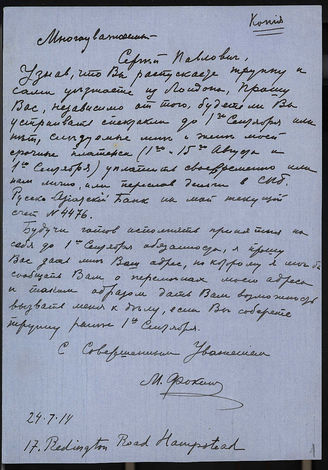 Копія
Многоуважаемый
Сергѣй Павловичъ,
Узнавъ, что Вы распускаете труппу и
сами уѣзжаете изъ Лондона, прошу
Васъ, независимо отъ того, будете ли Вы
устраивать спектакли до 1го Сентября или
нѣтъ, слѣдуемые мнѣ и женѣ моей
срочные платежи (1го - 15го Августа и
1го Сентября) уплатить своевременно или
намъ лично, или переславъ деньги въ СПБ.
Русско Азіатскій Банкъ на мой текущій
счетъ № 4476.
Будучи готовъ исполнять принятыя на
себя до 1го Сентября обязанности, я прошу
Васъ дать мнѣ Вашъ адресъ, по которому я могъ бы
сообщать Вамъ о перемѣнахъ моего адреса
и такимъ образомъ дать Вамъ возможность
вызвать меня къ дѣлу, если Вы соберете
труппу раньше 1го Сентября.
Съ Совершеннымъ Уваженіемъ
М. Фокинъ
24-7-14
17. Redington Road Hampstead